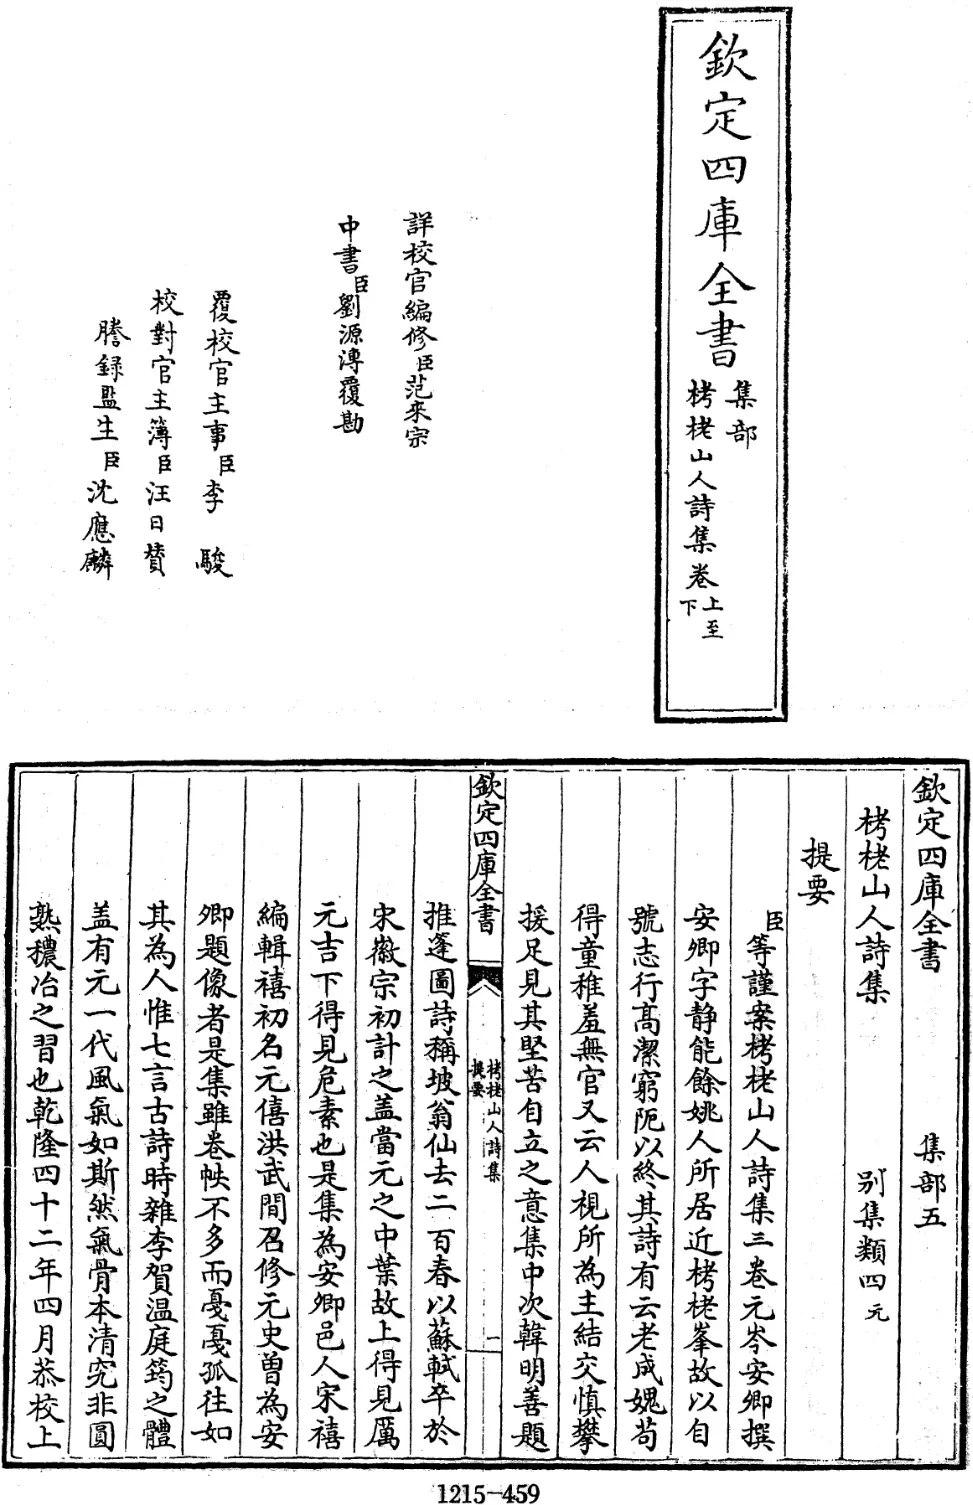 欽定四庫全書
集部
栲栳山人詩集卷上至下
詳校官編修臣范來宗
中書臣劉源溥覆勘
覆校官主事臣李駿
校對官主簿臣汪日贊
謄錄監生臣沈應麟
欽定四庫全書 集部五
栲栳山人詩集 別集類四元
提要
臣等謹案栲栳山人詩集三卷元岑安卿撰
安卿字靜能餘姚人所居近栲栳峯故以自
號志行高潔窮阨以終其詩有云老成媿苟
得童稚羞無官又云人視所為主結交慎攀
援足見其堅苦自立之意集中次韓明善題
欽定四庫全書
栲栳山人詩集
提要
一
推篷圖詩稱坡翁仙去二百春以蘇軾卒於
宋徽宗初計之蓋當元之中葉故上得見厲
元吉下得見危素也是集為安卿邑人宋禧
編輯禧初名元僖洪武間召修元史曾為安
卿題像者是集雖卷帙不多而戛戛孤往如
其為人惟七言古詩時雜李賀溫庭筠之體
盖有元一代風氣如斯然氣骨本清究非圓
熟穠冶之習也乾隆四十二年四月恭校上
1215-459